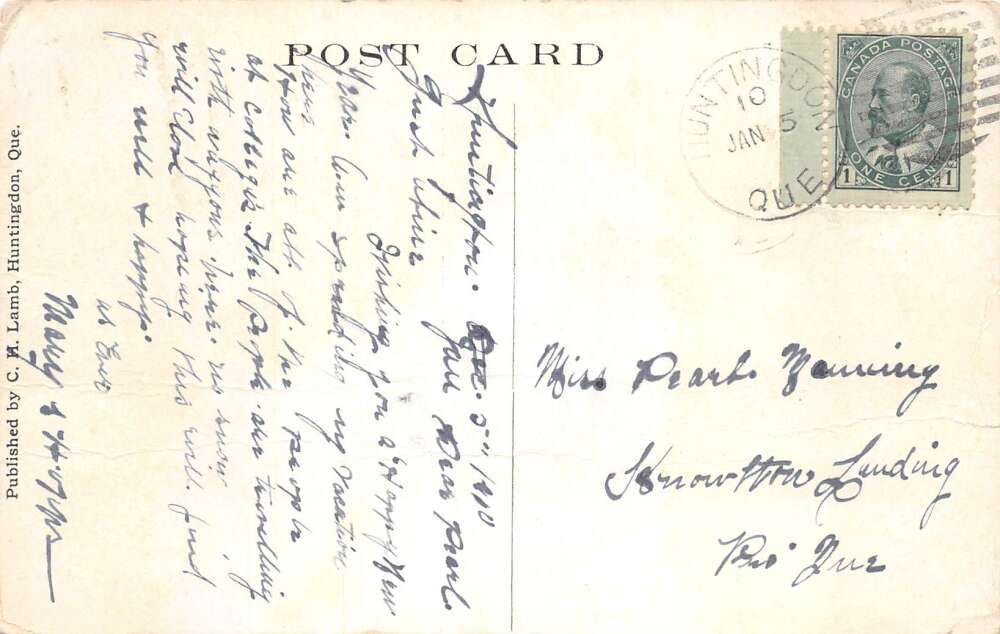 POST CARD
Huntingdon. Que. 5" 1910
Just a line Dear Pearl.
Wishing you a "Happy New
Year. am spending my Vacation
here
How are all of the people
at College. The people are travelling
with waggons here. no snow
will hoping this will find
you well & happy.
as Ever
Mary J. H.
Published by C. H. Lamb, Huntingdon, Que.
HUNTINGDON
10
JAN 5
QUE
CANADA POSTAGE
1 ONE CENT 1
Miss Pearl Manning
Knowlton Landing
Que